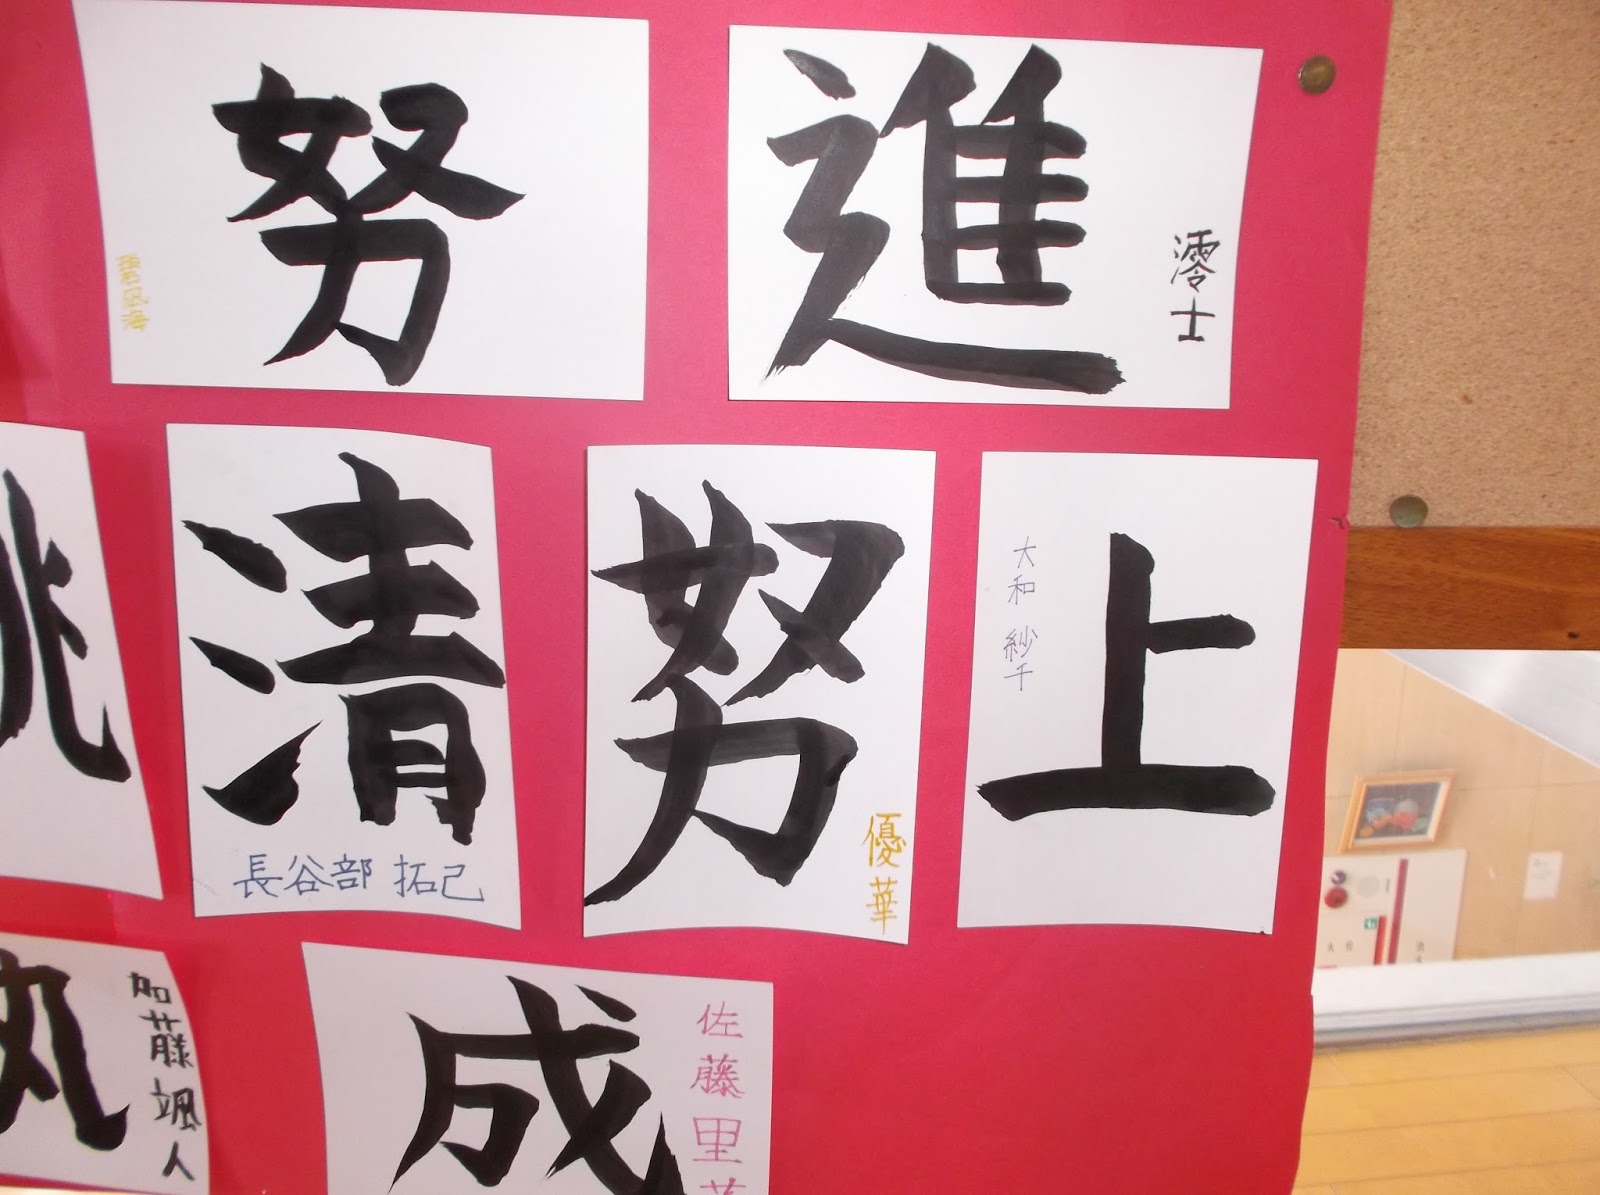 努
進
澪士
清
長谷部 拓己
努
優華
上
大和 紗千
加藤颯人
成
佐藤里